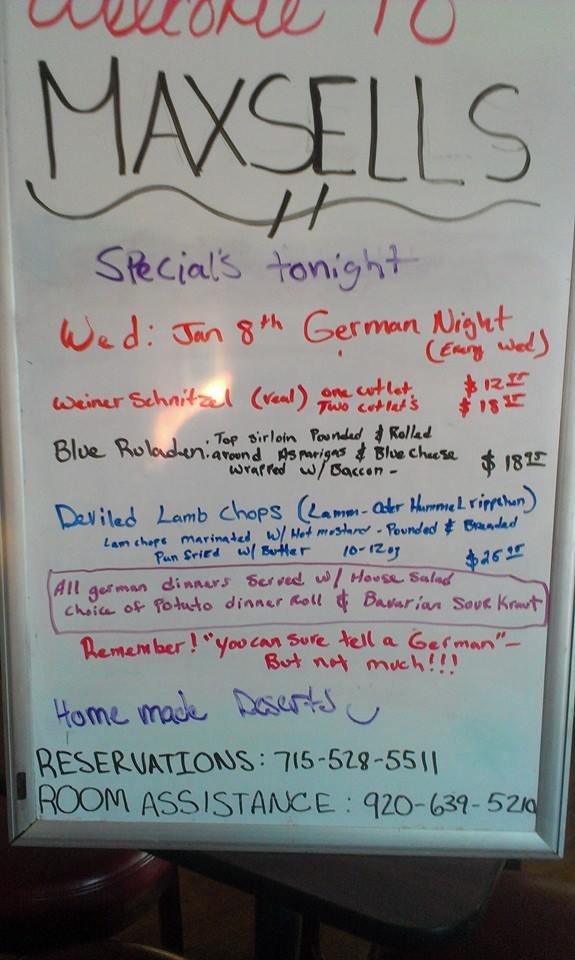 Welcome To
MAXSELLS
Special's tonight
Wed: Jan 8th German Night
(Every Wed)
Weiner Schnitzel (veal) one cutlet $12.95
Two cutlet's $18.95
Blue Ruladen: Top Sirloin Pounded & Rolled
around Asparigas & Blue cheese
wrapped w/ Baccon - $18.95
Deviled Lamb Chops (Lamm- Oder Hammelrippchen)
Lam chops marinated w/ Hot mustard - Pounded & Breaded
Pan Fried w/ Butter 10-12oz $26.95
All german dinners Served w/ House Salad
choice of Potato dinner Roll & Bavarian Sour Kraut
Remember! "you can sure tell a German" -
But not much!!!
Home made Deserts
RESERVATIONS: 715-528-5511
ROOM ASSISTANCE: 920-639-5210